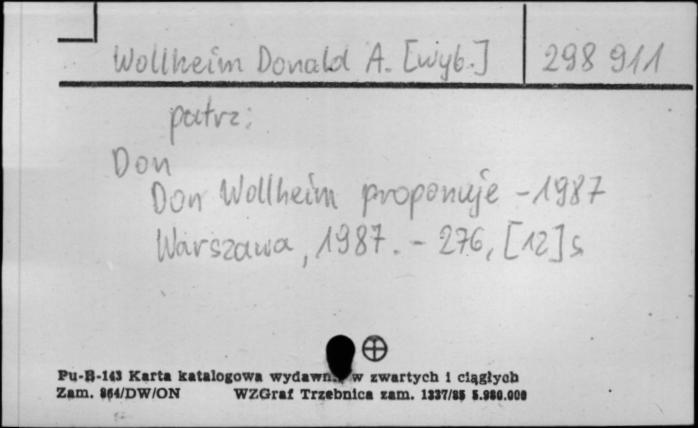 Wollheim Donald A. [wyb.] 298 911
patrz:
Don
Don Wollheim proponuje - 1987
Warszawa, 1987. - 276, [12] s
Pu-B-143 Karta katalogowa wydawn. w zwartych i ciągłych
Zam. 864/DW/ON WZGraf Trzebnica zam. 1337/85 5.980.000